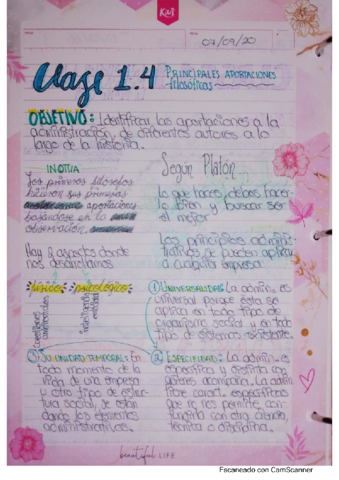 K&B
07/09/20
Clase 1.4 PRINCIPALES APORTACIONES
filosóficas
OBJETIVO: Identificar las aportaciones a la
administración, de diferentes autores a lo
lago de la historia.
Los primeros filosofos
hicieron sus primeras
aportaciones
basandose en la
observación,
Hay 2 aspectos donde
nos desarrollamos
físico psicológico
Según Platón
lo que haces, debes hacer-
lo bien y buscar ser
el mejor
Los principios adminis-
trativos se pueden aplicar
a cualquier empresa.
① UNIVERSALIDAD: La admin. es
universal porque esta se
aplica en todo tipo de
organismo social y en todo
tipo de sistemas
③ SU UNIDAD TEMPORAL: En
todo momento de la
vida de una empresa
u otro tipo de estruc-
tura social, se estan
dando los elementos
② ESPECIFICIDAD: La admin. es
especifica y distinta con
quienes acompaña. La admin
tiene caract. especificas
que no nos permite con-
fundirla con otra ciencia,
técnica o disciplina.
beautiful LIFE
Escaneado con CamScanner